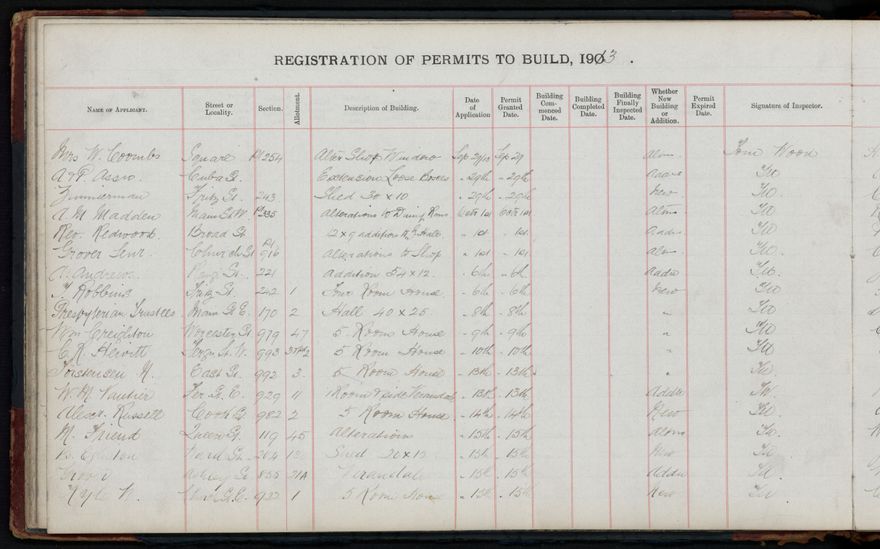 REGISTRATION OF PERMITS TO BUILD, 1903.
NAME OF APPLICANT. Street or Locality. Section. Allotment. Description of Building. Date of Application Permit Granted Date. Building Commenced Date. Building Completed Date. Building Finally Inspected Date. Whether New Building or Addition. Permit Expired Date. Signature of Inspector.
Mrs W. Coombs Square Pt 254 Alter Shop Window Alons Tom Wood
A & P. Assn. Cuba St. Extension Loose Boxes - 29th - 29th TW
Zimmerman Fritz St. 243 Shed 30 x 10 - 29th - 29th New TW
A. M. Madden Main St W. Pt 335 Alterations to Dining Room Octr 1st Octr 1st Altns TW
Rev. Redwood Broad St 12 x 9 addition to Hall - 1st - 1st Addn TW
Grover Senr. Church St Pt 916 Alterations to Shop - 1st - 1st Altns TW
Andrews St. 221 Addition 34 x 12 - 6th - 6th Addn TW
Robbins Fritz St. 242 1 Four Room House - 6th - 6th New TW
Presbyterian Trustees Main St E. 170 2 Hall 40 x 25 - 8th - 8th " TW
Wm Creighton Worcester St 979 47 5 Room House - 9th - 9th " TW
C. R. Hewitt Ferg. St. W. 993 5 Room House - 10th - 10th " TW
Torstensen N. East St. 992 3 5 Room House - 13th - 13th " TW
W. M. Vautier Fer St. E. 929 11 1 Room & side Verandah - 13th - 13th Addtn TW
Alexr. Russell Cook St 982 2 5 Room House - 14th - 14th New TW
M. Friend Queen St. 119 45 Alterations - 15th - 15th Altons TW
Ward St. 264 Shed 20 x 12 - 15th - 15th New TW
Grover Ashley St 835 21A Verandah - 15th - 15th Addtn TW
Kyle W. St. E. 932 1 5 Room House - 15th - 15th New TW